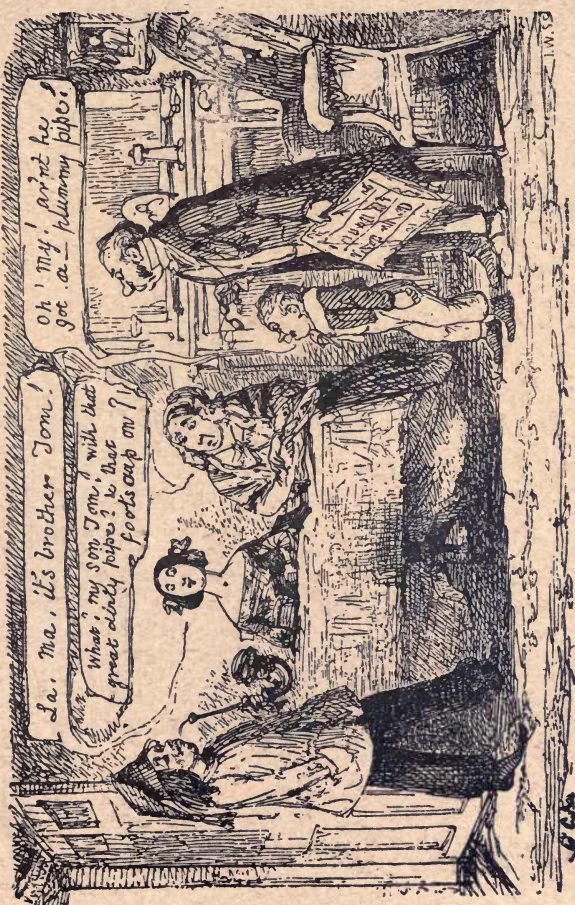 La, Ma, it's brother Tom!
What! my son Tom! with that
great dirty pipe? & that
foolscap on!
Oh! my! ain't he
got a plummy pipe!